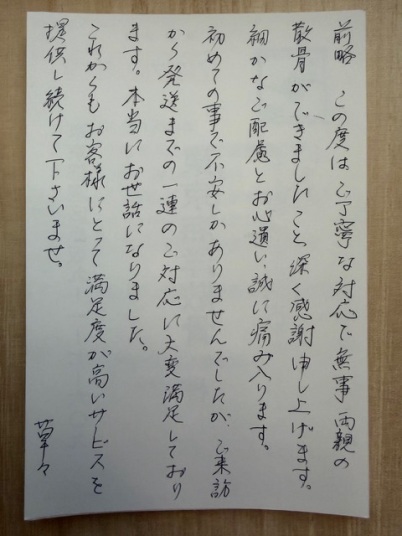 前略　この度はご丁寧な対応で無事両親の
散骨ができましたこと、深く感謝申し上げます。
細かなご配慮とお心遣い、誠に痛み入ります。
初めての事で不安しかありませんでしたが、ご来訪
から発送までの一連のご対応に大変満足しており
ます。本当にお世話になりました。
これからもお客様にとって満足度が高いサービスを
提供し続けて下さいませ。
草々